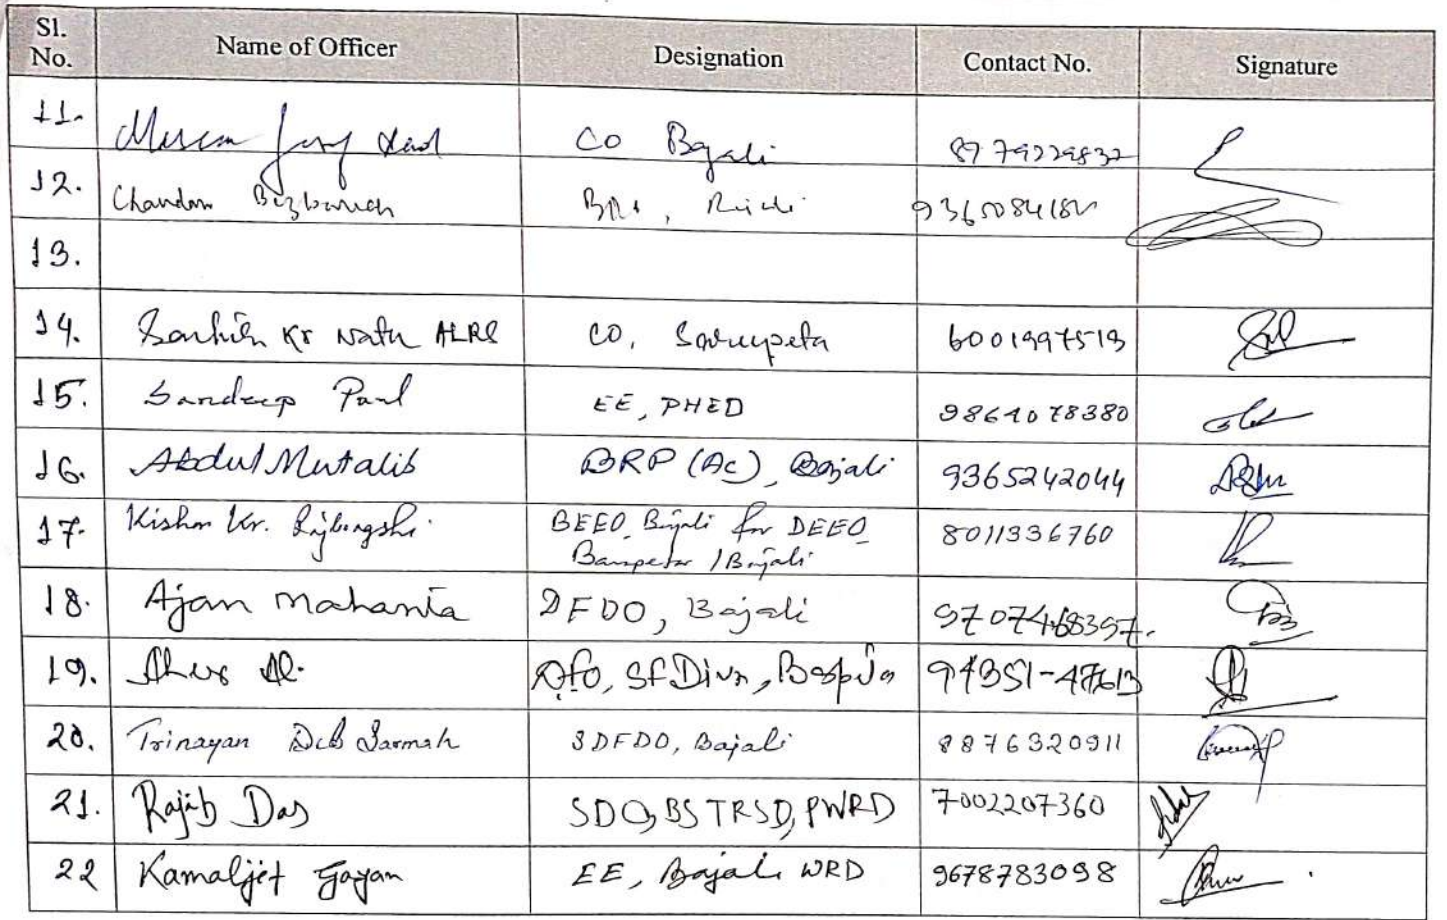 Sl. No. Name of Officer Designation Contact No. Signature
11. CO Bajali 8979229832
12. Chandan Bezbaruah 9365084182
13.
14. Kr Nath ALRS CO, Sarupeta 6001997519
15. Sandeep Paul EE, PHED 9864078380
16. Abdul Mutalib BRP (Ac), Bajali 9365242044
17. Kishor Kr. Rajbongshi BEEO, Bajali for DEEO, 8011336760
Barpeta / Bajali
18. Ajan Mahanta DFDO, Bajali 9707468397.
19. DFO, SF Divn, 94351-47613
20. Trinayan Deb Sarmah SDFDO, Bajali 8876320911
21. Rajib Das SDO, BS TRSD, PWRD 7002207360
22 Kamaljit Gayan EE, Bajali WRD 9678783098